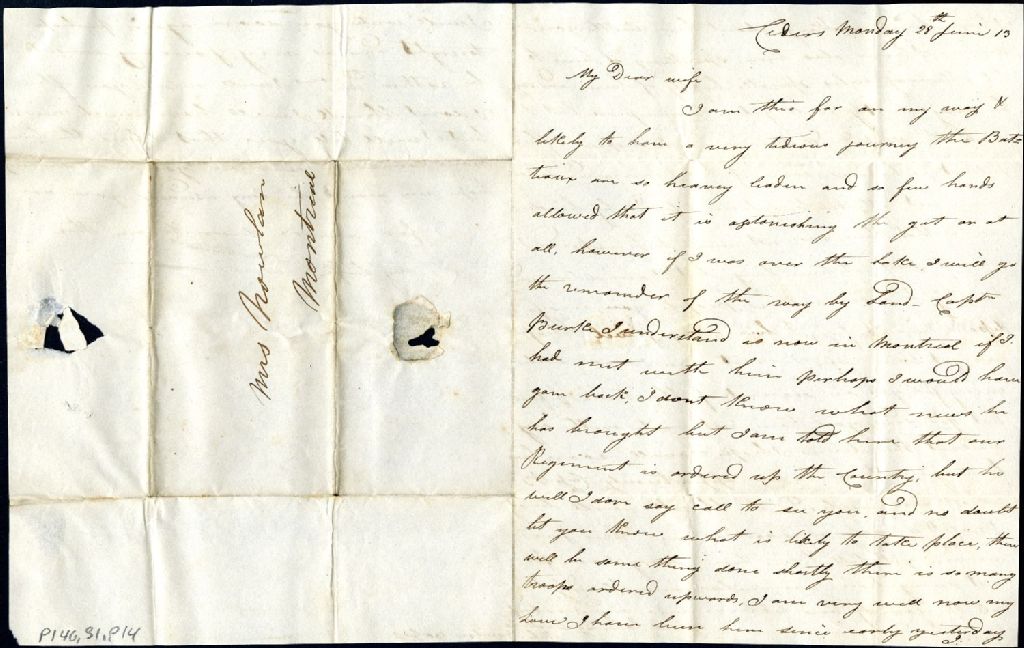 Mrs Nowlan
Montreal
P140,S1,P14
Ceders Monday 28th June 13
My Dear wife
I am this far on my way &
likely to have a very tedious journey the Bat=
teaux are so heavey loaden and so few hands
allowed that it is astonishing the get on at
all, however if I was over the Lake I will go
the remainder of the way by Land - Capt
Burke I understand is now in Montreal if I
had met with him perhaps I would have
gone back, I dont know what news he
has brought but I am told here that our
Regiment is ordered up the Country, but he
will I dare say call to see you, and no doubt
let you know what is likely to take place, there
will be some thing done shortly there is so many
troops ordered upwards, I am very well now my
Love I have been here since early yesterday
I